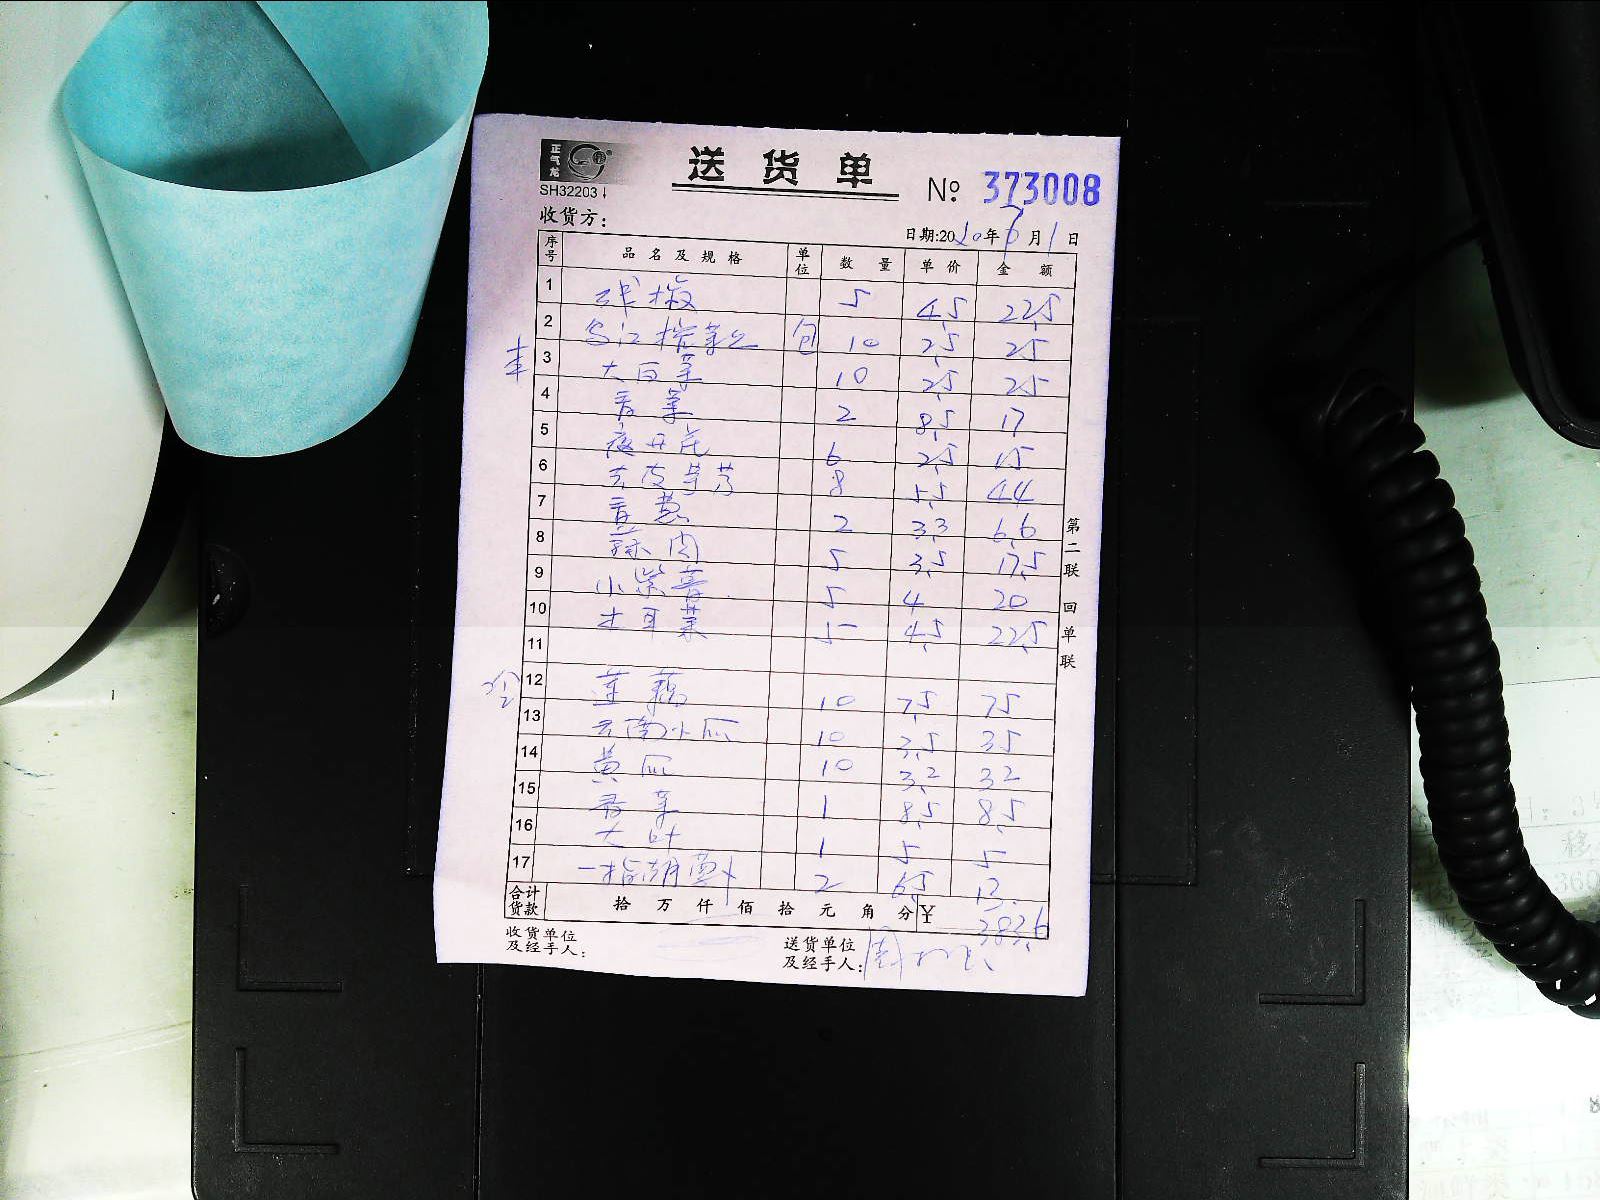 正气龙
送货单
SH32203
№ 373008
收货方：
日期:2020年 月1日
序号 品名及规格 单位 数量 单价 金额
1 线椒 5 4.5 22.5
2 乌江榨菜丝 包 10 2.5 25
3 大白菜 10 2.5 25
4 香菜 2 8.5 17
5 2.5 15 6
6 去皮芋艿 8 5.5 44
7 青葱 2 3.3 6.6
8 蒜肉 5 3.5 17.5
9 小紫 5 4 20
10 木耳菜 5 4.5 22.5
11
12 莲藕 10 7.5 75
13 云南小瓜 10 3.5 35
14 黄瓜 10 3.2 32
15 香菜 1 8.5 8.5
16 大叶 1 5 5
17 一指 2 6.5 13
合计货款 拾 万 仟 佰 拾 元 角 分 ¥ 383.6
收货单位及经手人：
送货单位及经手人：
第二联 回单联